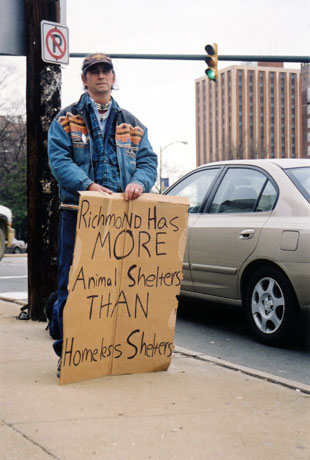 Richmond Has
MORE
Animal Shelters
THAN
Homeless Shelters